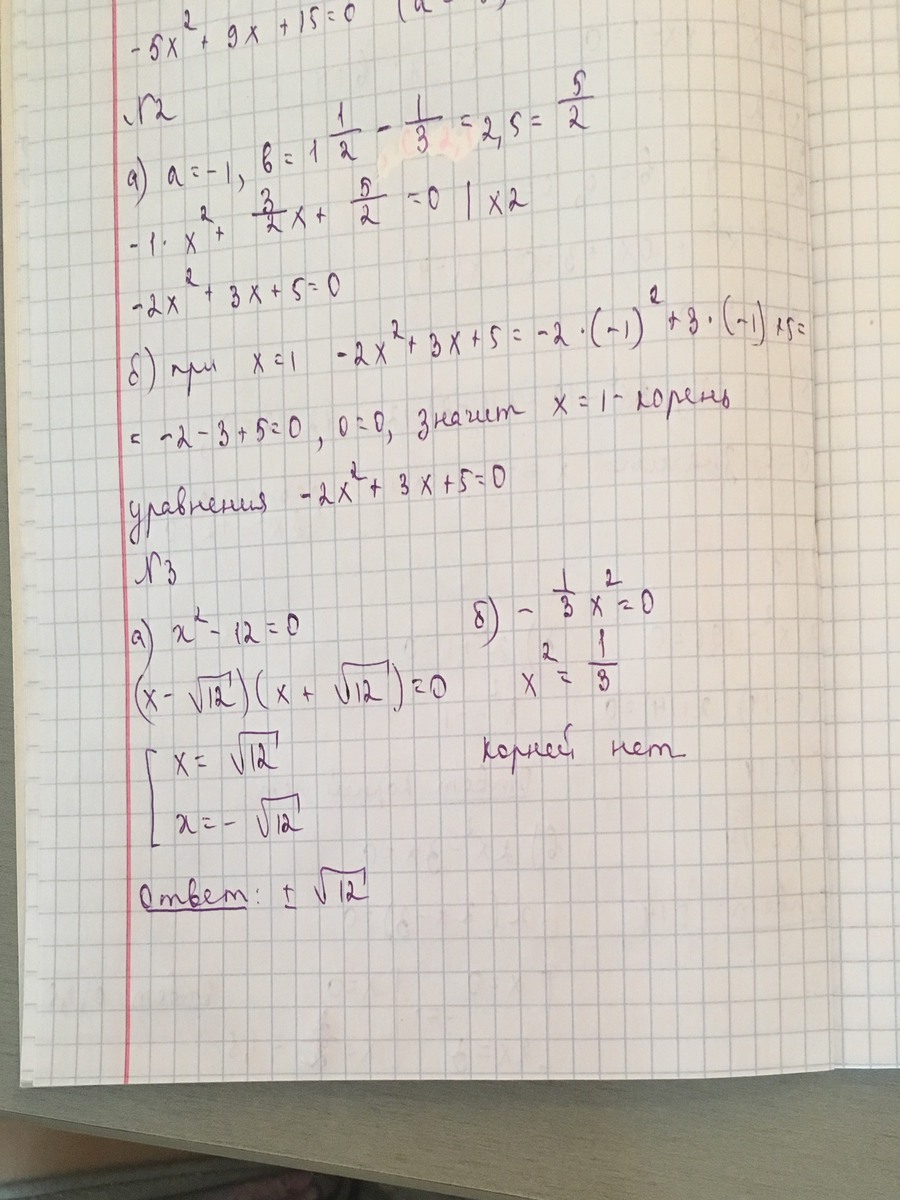 -5x² + 9x + 15 = 0
№2
а) a = -1, в = 1 1/2 - 1/3 = 2,5 = 5/2
-1 · x² + 3/2 x + 5/2 = 0 | x2
-2x² + 3x + 5 = 0
б) при x = 1 -2x² + 3x + 5 = -2 · (-1)² + 3 · (-1) + 5 =
= -2 - 3 + 5 = 0, 0 = 0, значит x = 1 - корень
уравнения -2x² + 3x + 5 = 0
№3
а) x² - 12 = 0
(x - √12)(x + √12) = 0
[ x = √12
x = - √12
Ответ: ± √12
б) - 1/3 x² = 0
x² = 1/3
корней нет